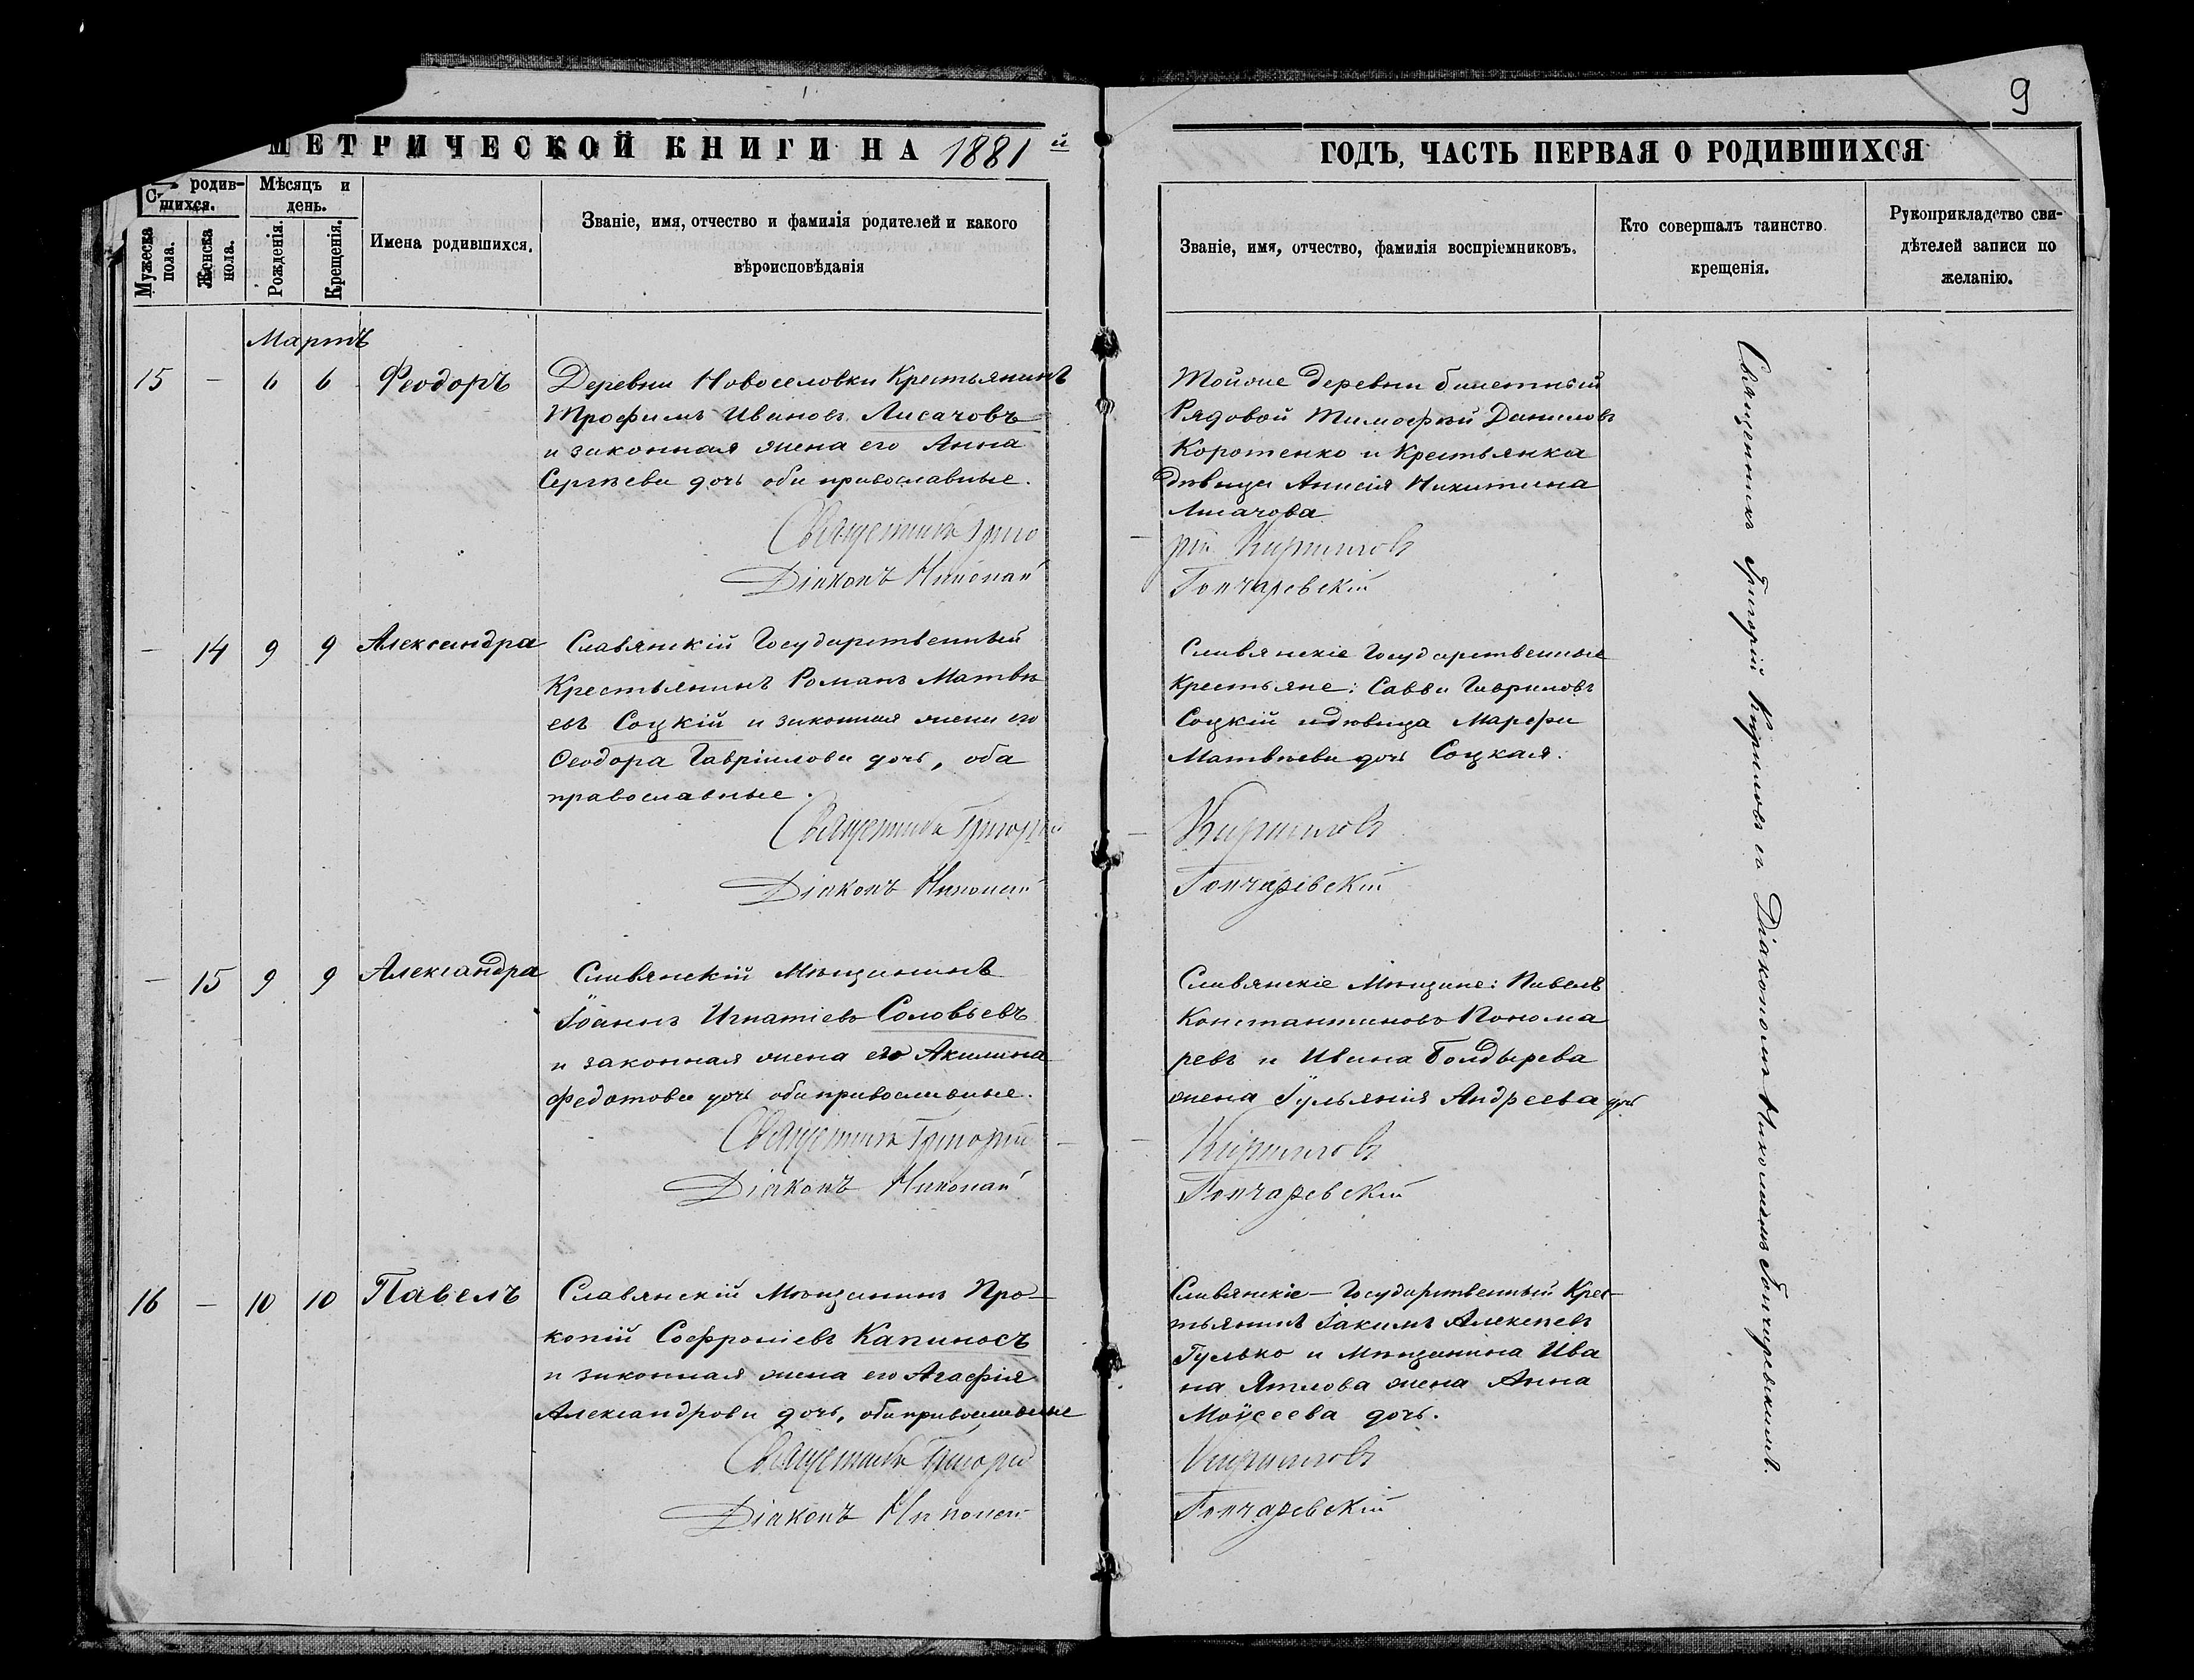 9
МЕТРИЧЕСКОЙ КНИГИ НА 1881 й
ГОДЪ, ЧАСТЬ ПЕРВАЯ О РОДИВШИХСЯ
родив-
шихся.
Мужеска пола.
Женска пола.
Мѣсяцъ и день.
Рожденія.
Крещенія.
Имена родившихся.
Званіе, имя, отчество и фамилія родителей и какого
вѣроисповѣданія
Званіе, имя, отчество, фамилія воспріемниковъ.
Кто совершалъ таинство
крещенія.
Рукоприкладство сви-
дѣтелей записи по
желанію.
Мартъ
15 — 6 6 Феодоръ
Деревни Новоселовки Крестьянинъ
Трофимъ Ивановъ Лисачовъ
и законная жена его Анна
Сергѣева дочь оба православные.
Священникъ Григо
Діаконъ Николай
Тойже деревни билетный
Рядовой Тимофѣй Даниловъ
Коротенко и Крестьянка
дѣвица Анисія Никитина
Лисачова
рій Кириловъ
Гончаревскій
— 14 9 9 Александра
Славянскій Государственный
Крестьянинъ Романъ Матвѣ
евъ Соцкій и законная жена его
Феодора Гавріилова дочь, оба
православные.
Священникъ Григорій
Діаконъ Николай
Славянскіе Государственные
Крестьяне: Савва Гавриловъ
Соцкій и дѣвица Марфа
Матвѣева дочь Соцкая.
Кириловъ
Гончаревскій
— 15 9 9 Александра
Славянскій Мѣщанинъ
Іоаннъ Игнатіевъ Соловьевъ
и законная жена его Акилина
Федотова дочь оба православные.
Священникъ Григорій
Діаконъ Николай
Славянскіе Мѣщане: Павелъ
Константиновъ Понома
ревъ и Ивана Болдырева
жена Іульянія Андреева дочь
Кириловъ
Гончаревскій
16 — 10 10 Павелъ
Славянскій Мѣщанинъ Про-
копій Софроніевъ Капиносъ
и законная жена его Агафія
Александрова дочь, оба православные
Священникъ Григорій
Діаконъ Николай
Славянскіе — Государственный Крес-
тьянинъ Іакимъ Алексѣевъ
Гулько и Мѣщанина Ива
на Ятлова жена Анна
Моѵсеева дочь.
Кириловъ
Гончаревскій
Священникъ Григорій Кириловъ съ Діакономъ Николаемъ Гончаревскимъ.